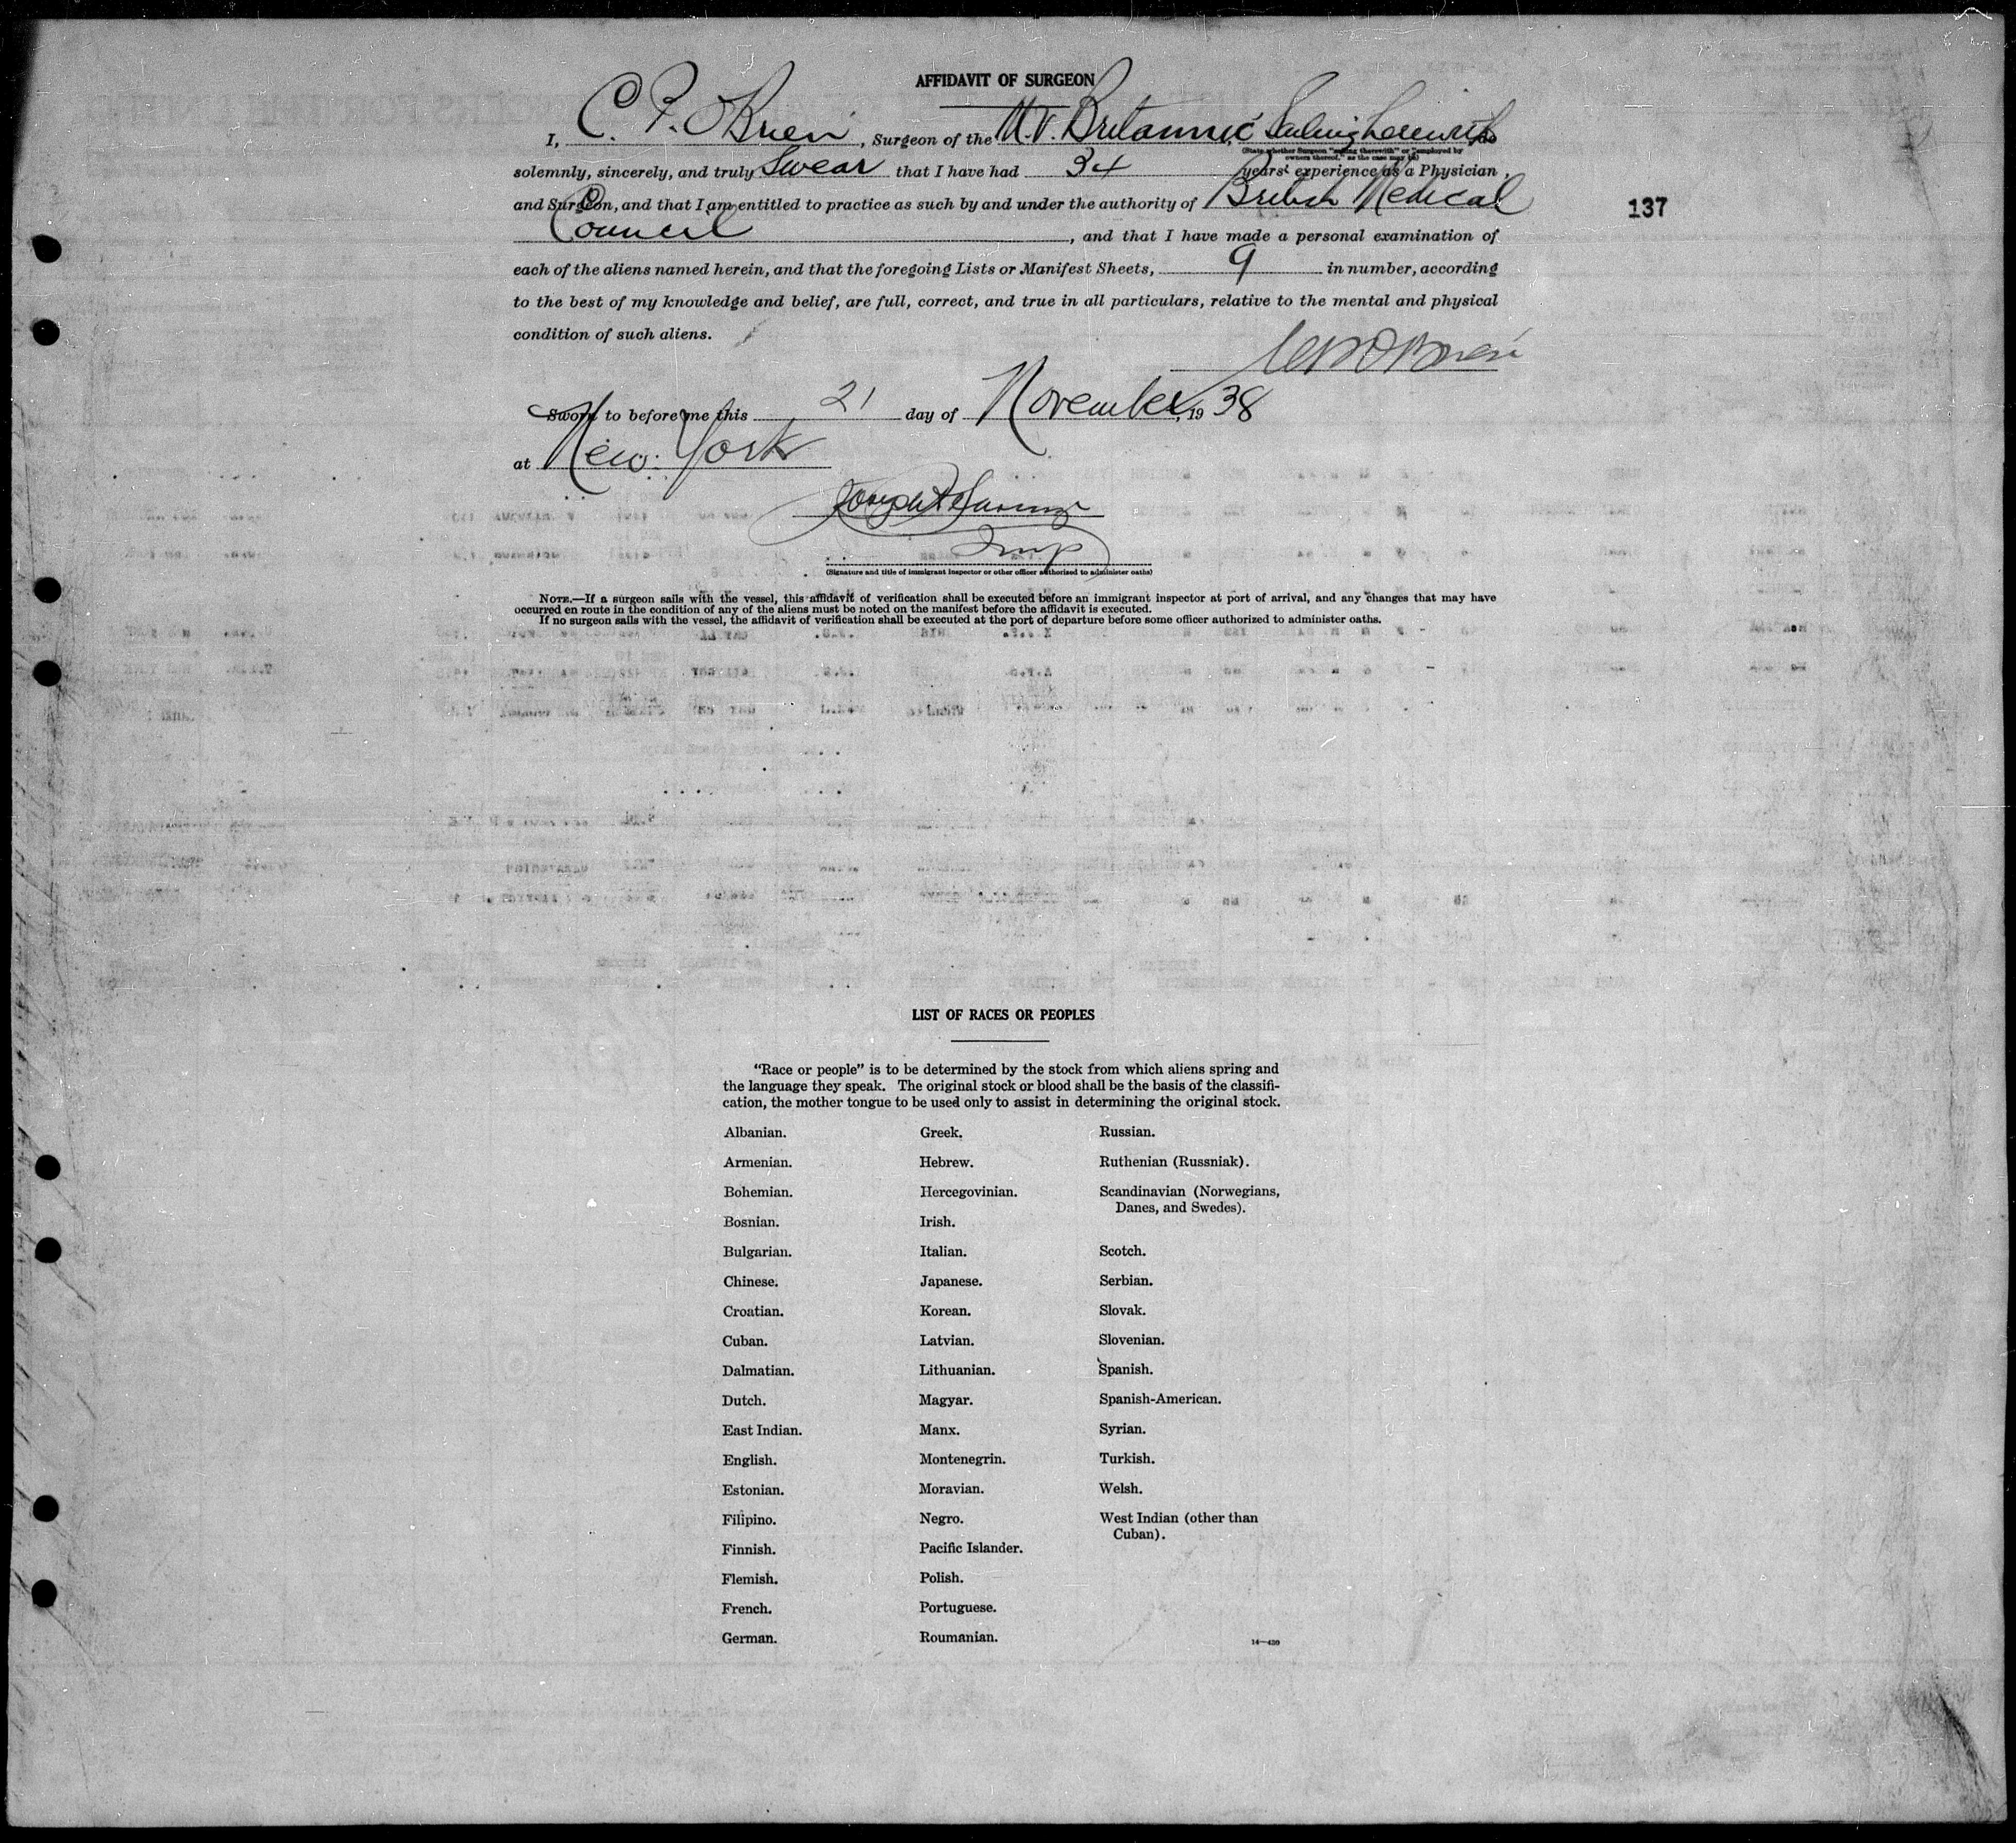 AFFIDAVIT OF SURGEON
I, C. P. O'Brien, Surgeon of the M.V. Britannic, Sailing therewith, do
(State whether Surgeon "sailing therewith" or "employed by
owners thereof," as the case may be)
solemnly, sincerely, and truly Swear that I have had 34 years' experience as a Physician
and Surgeon, and that I am entitled to practice as such by and under the authority of British Medical
137
Council, and that I have made a personal examination of
each of the aliens named herein, and that the foregoing Lists or Manifest Sheets, 9 in number, according
to the best of my knowledge and belief, are full, correct, and true in all particulars, relative to the mental and physical
condition of such aliens.
C P O'Brien
Sworn to before me this 21 day of November, 1938
at New York
Joseph
Insp
(Signature and title of immigrant inspector or other officer authorized to administer oaths)
NOTE.—If a surgeon sails with the vessel, this affidavit of verification shall be executed before an immigrant inspector at port of arrival, and any changes that may have
occurred en route in the condition of any of the aliens must be noted on the manifest before the affidavit is executed.
If no surgeon sails with the vessel, the affidavit of verification shall be executed at the port of departure before some officer authorized to administer oaths.
LIST OF RACES OR PEOPLES
"Race or people" is to be determined by the stock from which aliens spring and
the language they speak. The original stock or blood shall be the basis of the classifi-
cation, the mother tongue to be used only to assist in determining the original stock.
Albanian.
Armenian.
Bohemian.
Bosnian.
Bulgarian.
Chinese.
Croatian.
Cuban.
Dalmatian.
Dutch.
East Indian.
English.
Estonian.
Filipino.
Finnish.
Flemish.
French.
German.
Greek.
Hebrew.
Hercegovinian.
Irish.
Italian.
Japanese.
Korean.
Latvian.
Lithuanian.
Magyar.
Manx.
Montenegrin.
Moravian.
Negro.
Pacific Islander.
Polish.
Portuguese.
Roumanian.
Russian.
Ruthenian (Russniak).
Scandinavian (Norwegians,
Danes, and Swedes).
Scotch.
Serbian.
Slovak.
Slovenian.
Spanish.
Spanish-American.
Syrian.
Turkish.
Welsh.
West Indian (other than
Cuban).
14—430